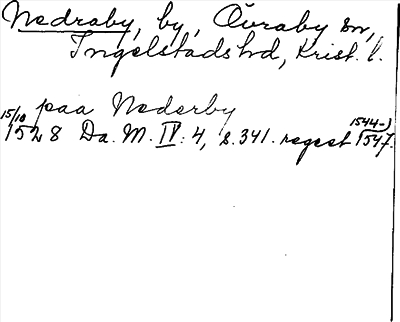 Nedraby, by, Övraby sn,
Ingelstads hd, Krist. l.
paa Nederby
15/10 1528 Da. M. IV: 4, s. 341. regest 1544-) 1547.